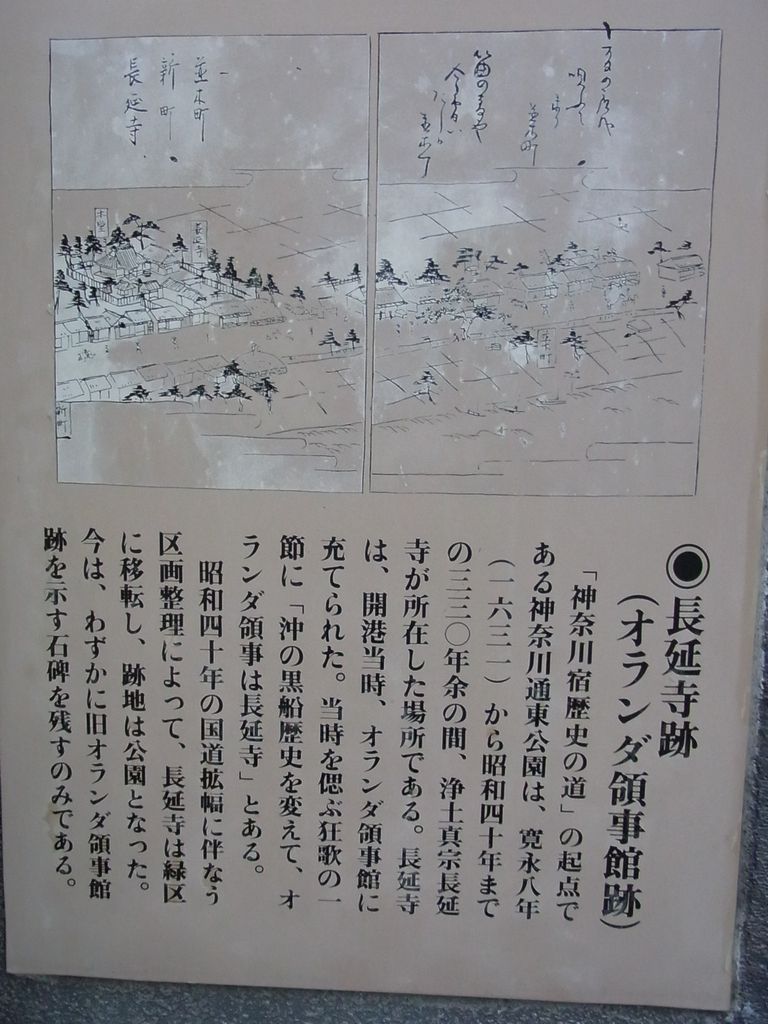 並木町
新町
長延寺
本堂
長延寺
並木町
新町
●長延寺跡
（オランダ領事館跡）
「神奈川宿歴史の道」の起点で
ある神奈川通東公園は、寛永八年
（一六三一）から昭和四十年まで
の三三〇年余の間、浄土真宗長延
寺が所在した場所である。長延寺
は、開港当時、オランダ領事館に
充てられた。当時を偲ぶ狂歌の一
節に「沖の黒船歴史を変えて、オ
ランダ領事は長延寺」とある。
昭和四十年の国道拡幅に伴なう
区画整理によって、長延寺は緑区
に移転し、跡地は公園となった。
今は、わずかに旧オランダ領事館
跡を示す石碑を残すのみである。